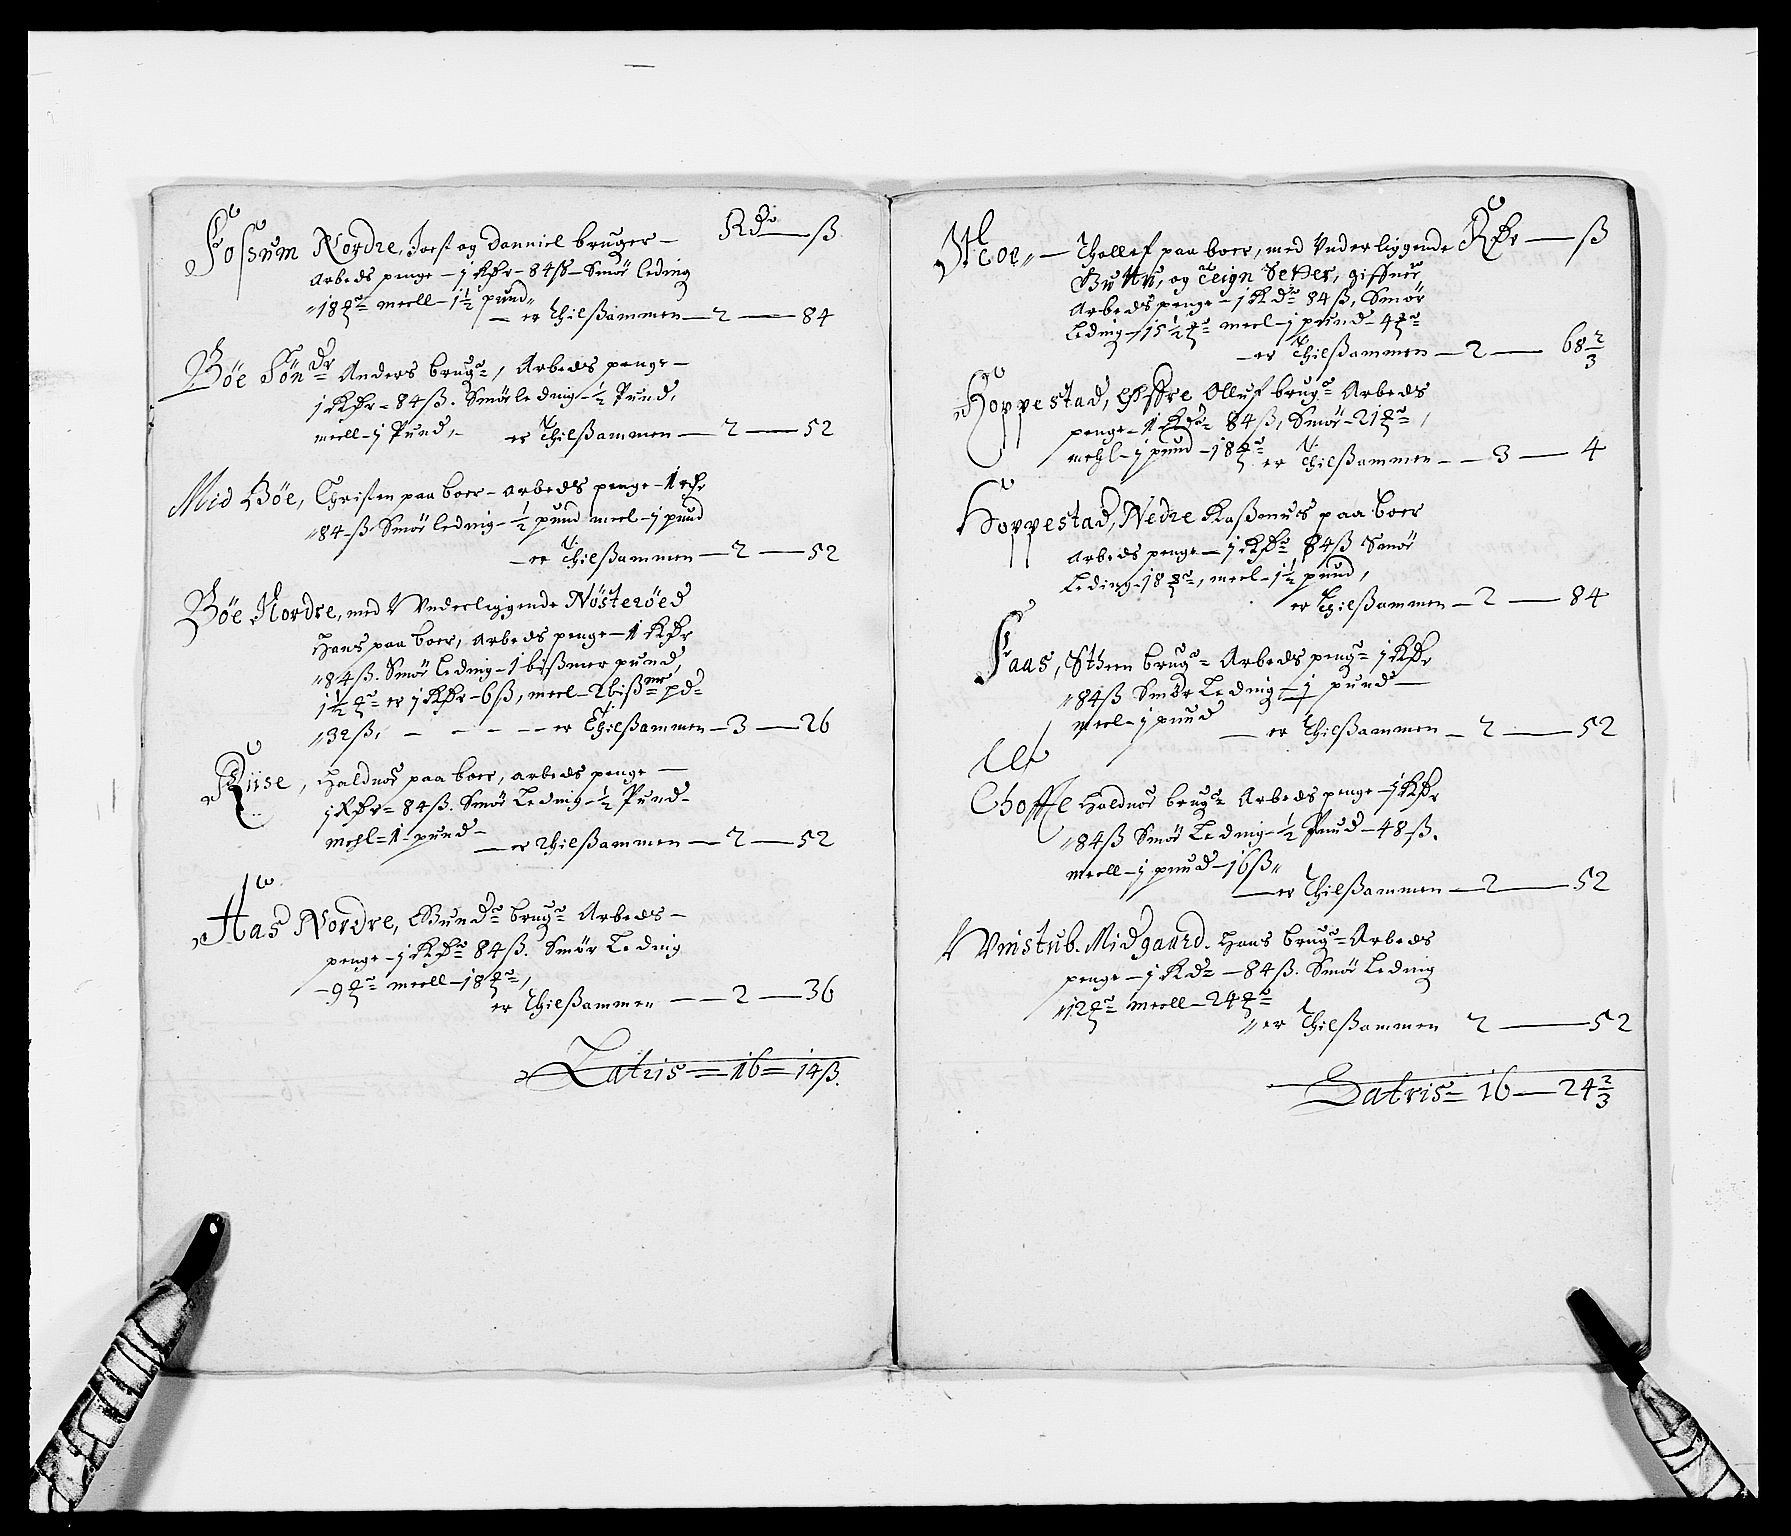 Rdr — ß
Fossum Nordre, Joest og Danniel bruger —
Arbeds penge — j Rdr — 84 ß — Smör leding
18 ℔r meell — 1½ pund
— er Thilßammen — 2 — 84
Böe Söndr Anders brugr, Arbeds penge —
j Rdr — 84 ß. Smörleding — ½ Pund,
meell — j Pund, — er Thilßammen — 2 — 52
Mid Böe, Christen paa boer — arbeds penge — 1 rdr
84 ß Smör leding — ½ pund meel — j pund
— er Thilßammen — 2 — 52
Böe Nordre, med Underliggende Nösteröed
Hans paa boer, arbeds penge — 1 Rdr
84 ß. Smör leding — 1 bißmer pund,
1½ ℔r er j Rdr — 6 ß, meel — 2 bißmr pd
32 ß, — — — — er Thilßammen — 3 — 26
Riise, Haldnor paa boer, arbeds penge —
j Rdr — 84 ß. Smör Leding — ½ Pund —
mehl — 1 pund — — er Thilßammen — 2 — 52
Aas Nordre, Gundr brugr Arbeds —
penge — j Rdr 84 ß. Smör Leding
— 9 ℔r meell — 18 ℔r,
er Thilßammen — — 2 — 36
Latris — 16 — 14 ß.
Rdr — ß
Moe — Thollef paa boer, med Underliggende
og Teign Setter, giffuer
Arbeds penge — j Rdr 84 ß, Smör
Leding — 15½ ℔r meel — j pund — 4 ℔r
— er Thilßammen — 2 — 68⅔
Hoppestad, Öffre Olluf brugr Arbeds
penge — 1 Rdr 84 ß, Smör — 21 ℔r,
mehl — j pund — 18 ℔r er Thilßammen — — 3 — 4
Hoppestad, Nedre Raßmus paa boer
arbeds penge — j Rdr 84 ß Smör
Leding — 18 ℔r, meel — 1½ pund,
er Thilßammen — 2 — 84
Faas, Sthen brugr Arbeds pengr j Rdr
84 ß Smör Leding — j pund —
meel — j pund — er Thilßammen — 2 — 52
Choffe Haldnor brugr Arbeds penge — j Rdr
84 ß Smör Leding — ½ Pund — 48 ß.
meell — j pund — 16 ß
— er Thilßammen — 2 — 52
Vinstub. Midgaard. Hans brugr Arbeds
penge — j Rdr — 84 ß. Smör Leding
12 ℔r meell — 24 ℔r
er Thilßammen 2 — 52
Latris — 16 — 24⅔